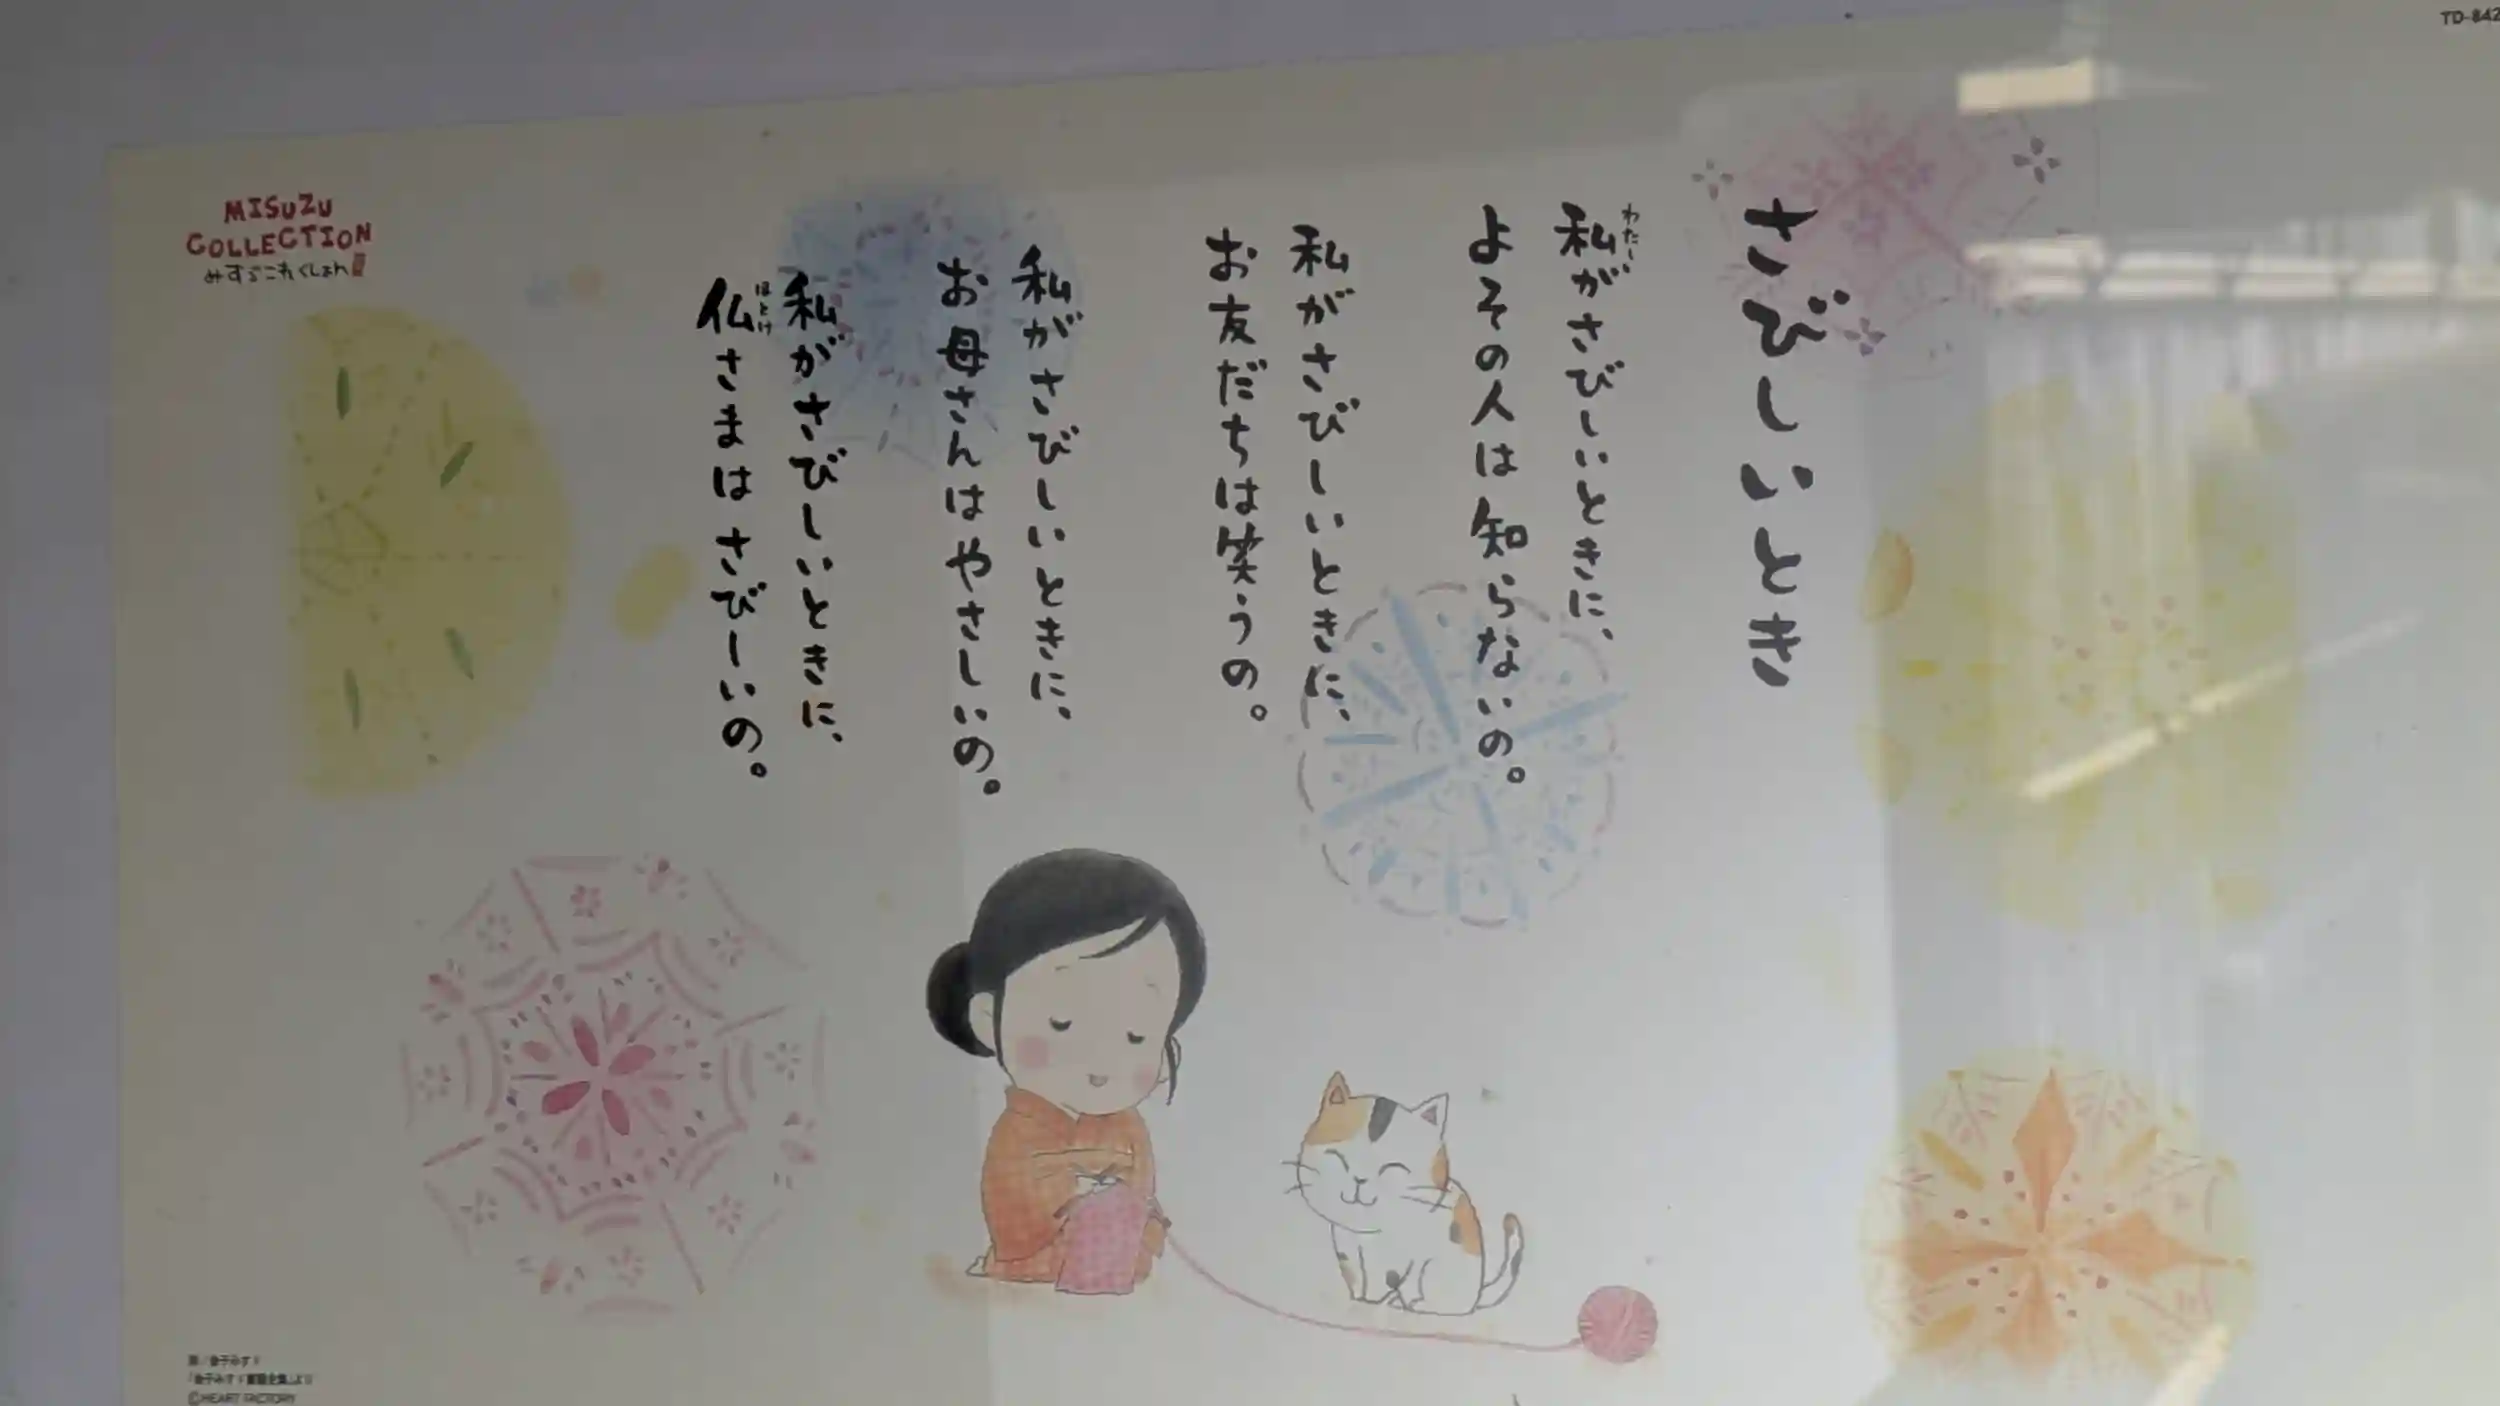 さびしいとき
私がさびしいときに、
わたし
よその人は知らないの。
私がさびしいときに、
お友だちは笑うの。
私がさびしいときに、
お母さんはやさしいの。
私がさびしいときに、
仏さまはさびしいの。
ほとけ
MISUZU
COLLECTION
みすゞこれくしょん
TD-842
詩/金子みすゞ
「金子みすゞ童謡全集」より
©HEART FACTORY